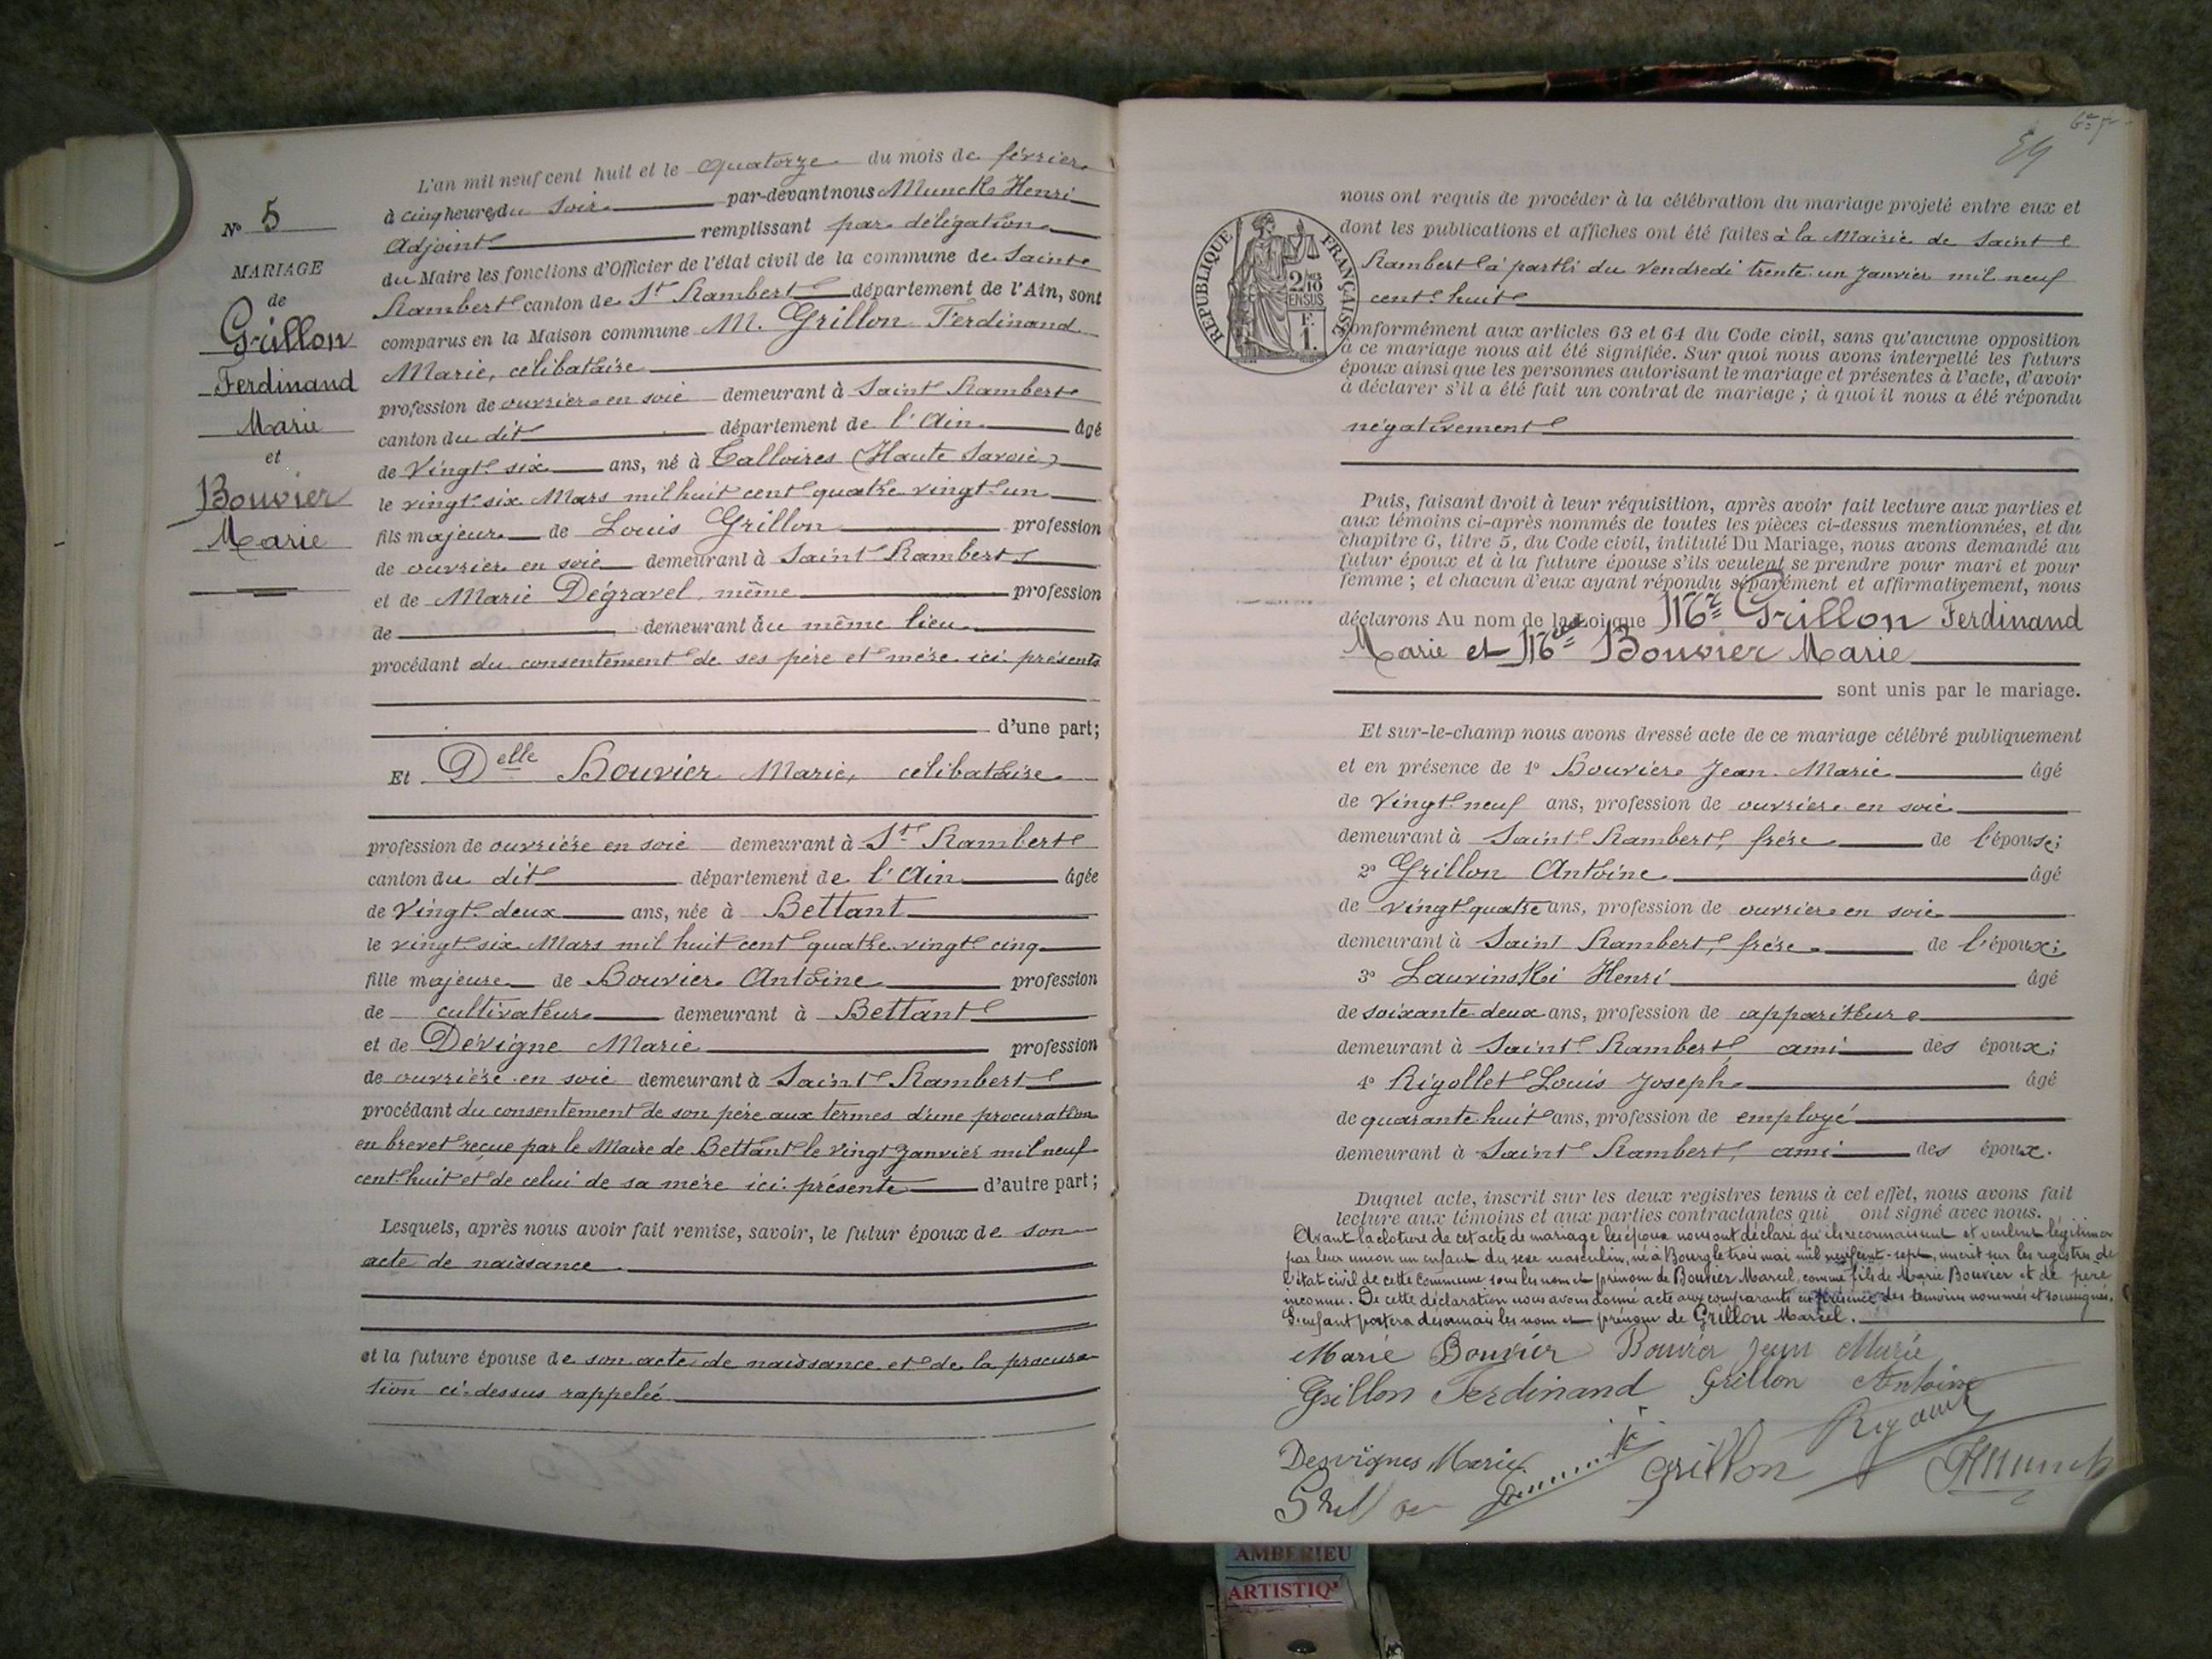 L'an mil neuf cent huit et le quatorze du mois de février
à cinq heures du soir par-devant nous Munck Henri
Adjoint remplissant par délégation
du Maire les fonctions d'Officier de l'état civil de la commune de Saint
Rambert canton de St Rambert département de l'Ain, sont
comparus en la Maison commune M. Grillon Ferdinand
Marie, célibataire
profession de ouvrier en soie demeurant à Saint Rambert
canton du dit département de l'Ain âgé
de Vingt-six ans, né à Talloires (Haute Savoie)
le vingt-six Mars mil huit cent quatre-vingt-un
fils majeur de Louis Grillon profession
de ouvrier en soie demeurant à Saint Rambert
et de Marie Dégravel, même profession
de demeurant au même lieu
procédant du consentement de ses père et mère ici présents
d'une part;
Et Delle Bouvier Marie, célibataire
profession de ouvrière en soie demeurant à St Rambert
canton du dit département de l'Ain âgée
de Vingt-deux ans, née à Bettant
le vingt-six Mars mil huit cent quatre-vingt-cinq
fille majeure de Bouvier Antoine profession
de cultivateur demeurant à Bettant
et de Dévigne Marie profession
de ouvrière en soie demeurant à Saint Rambert
procédant du consentement de son père aux termes d'une procuration
en brevet reçue par le Maire de Bettant le vingt Janvier mil neuf
cent-huit et de celui de sa mère ici présente d'autre part;
Lesquels, après nous avoir fait remise, savoir, le futur époux de son
acte de naissance
et la future épouse de son acte de naissance et de la procura
tion ci-dessus rappelée
N° 5
MARIAGE
de
Grillon
Ferdinand
Marie
et
Bouvier
Marie
59
nous ont requis de procéder à la célébration du mariage projeté entre eux et
dont les publications et affiches ont été faites à la Mairie de Saint
Rambert à partir du Vendredi trente-un Janvier mil neuf
cent-huit
RÉPUBLIQUE FRANÇAISE
2/10
EN SUS
F.
1.
conformément aux articles 63 et 64 du Code civil, sans qu'aucune opposition
à ce mariage nous ait été signifiée. Sur quoi nous avons interpellé les futurs
époux ainsi que les personnes autorisant le mariage et présentes à l'acte, d'avoir
à déclarer s'il a été fait un contrat de mariage ; à quoi il nous a été répondu
négativement
Puis, faisant droit à leur réquisition, après avoir fait lecture aux parties et
aux témoins ci-après nommés de toutes les pièces ci-dessus mentionnées, et du
chapitre 6, titre 5, du Code civil, intitulé Du Mariage, nous avons demandé au
futur époux et à la future épouse s'ils veulent se prendre pour mari et pour
femme ; et chacun d'eux ayant répondu séparément et affirmativement, nous
déclarons Au nom de la Loi que Mr Grillon Ferdinand
Marie et Melle Bouvier Marie
sont unis par le mariage.
Et sur-le-champ nous avons dressé acte de ce mariage célébré publiquement
et en présence de 1° Bouvier Jean Marie âgé
de Vingt-neuf ans, profession de ouvrier en soie
demeurant à Saint Rambert, frère de l'épouse;
2° Grillon Antoine âgé
de vingt-quatre ans, profession de ouvrier en soie
demeurant à Saint Rambert, frère de l'époux;
3° Laurinski Henri âgé
de soixante-deux ans, profession de appariteur
demeurant à Saint Rambert ami des époux;
4° Rigollet Louis Joseph âgé
de quarante-huit ans, profession de employé
demeurant à Saint Rambert, ami des époux.
Duquel acte, inscrit sur les deux registres tenus à cet effet, nous avons fait
lecture aux témoins et aux parties contractantes qui ont signé avec nous.
Avant la cloture de cet acte de mariage les époux nous ont déclaré qu'ils reconnaissent et veulent légitimer
par leur union un enfant du sexe masculin, né à Bourg le trois mai mil neuf cent-sept, inscrit sur les registres de
l'état civil de cette commune sous les nom et prénom de Bouvier Marcel, comme fils de Marie Bouvier et de père
inconnu. De cette déclaration nous avons donné acte aux comparants en présence des témoins nommés et soussignés.
L'enfant portera désormais les nom et prénom de Grillon Marcel.
Marie Bouvier Bouvier Jean Marie
Grillon Ferdinand Grillon Antoine
Desvignes Marie Grillon
HMunck
AMBERIEU
ARTISTIQ'